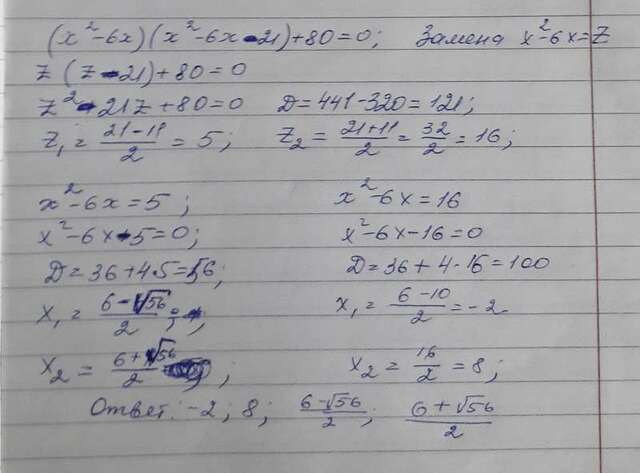 (x²-6x)(x²-6x-21)+80=0; Замена x²-6x=Z
Z(Z-21)+80=0
Z²-21Z+80=0 D=441-320=121;
Z₁=(21-11)/2=5; Z₂=(21+11)/2=32/2=16;
x²-6x=5; x²-6x=16
x²-6x-5=0; x²-6x-16=0
D=36+4·5=56; D=36+4·16=100
x₁=(6-√56)/2; x₁=(6-10)/2=-2.
x₂=(6+√56)/2; x₂=16/2=8;
Ответ: -2; 8; (6-√56)/2; (6+√56)/2